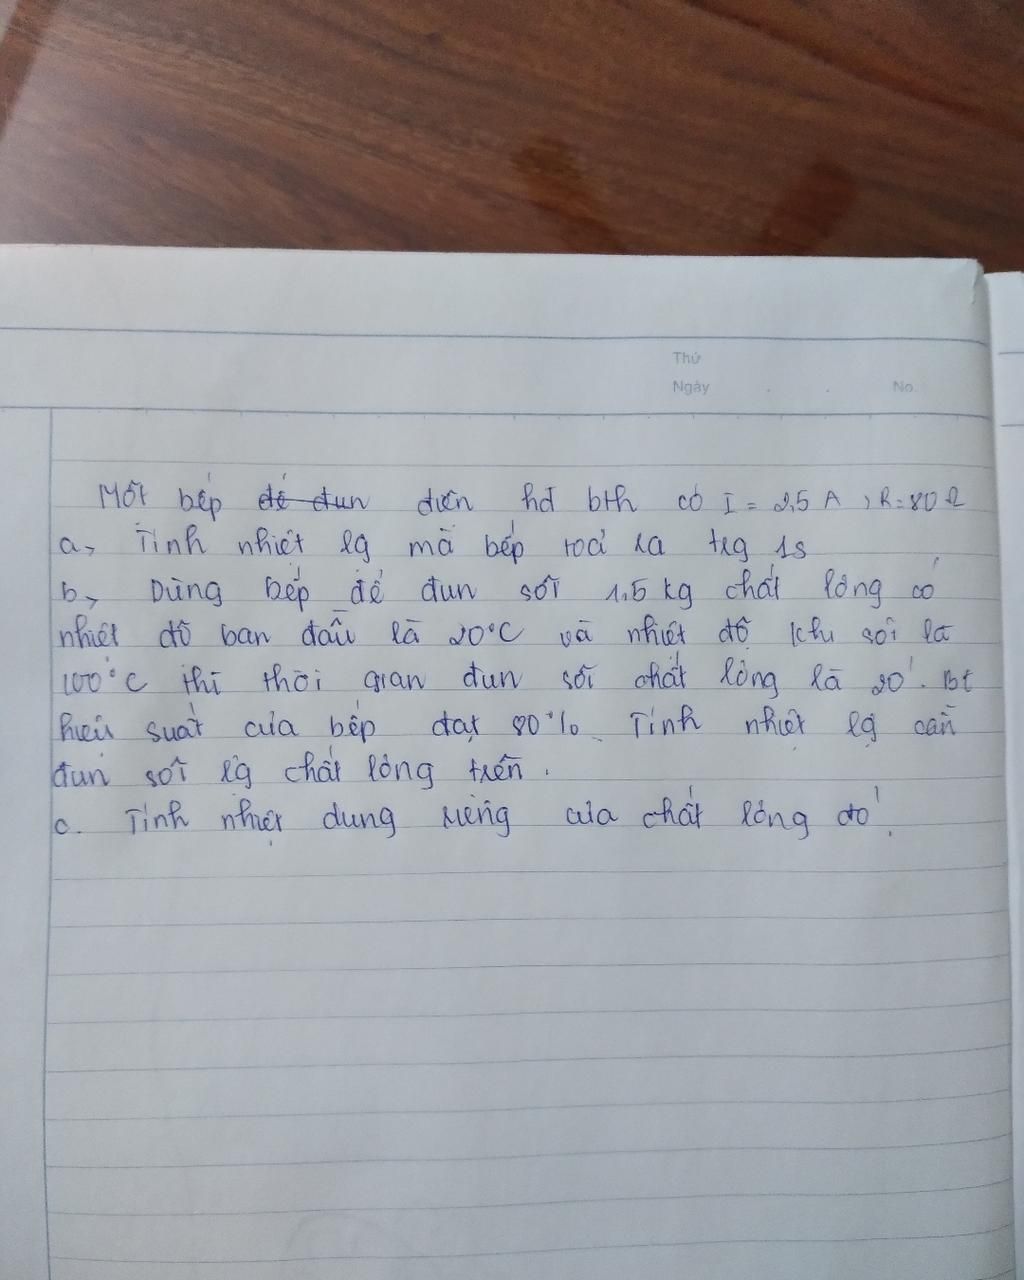 Thứ
Ngày . . No.
Một bếp để đun điện hđ bth có I = 2,5 A, R = 80 Ω
a, Tính nhiệt lg mà bếp toả ra trg 1s
b, Dùng bếp để đun sôi 1,5 kg chất lỏng có
nhiệt độ ban đầu là 20°C và nhiệt độ khi sôi là
100°C thì thời gian đun sôi chất lỏng là 20'. Bt
hiệu suất của bếp đạt 80%. Tính nhiệt lg cần
đun sôi lg chất lỏng trên.
c. Tính nhiệt dung riêng của chất lỏng đó.